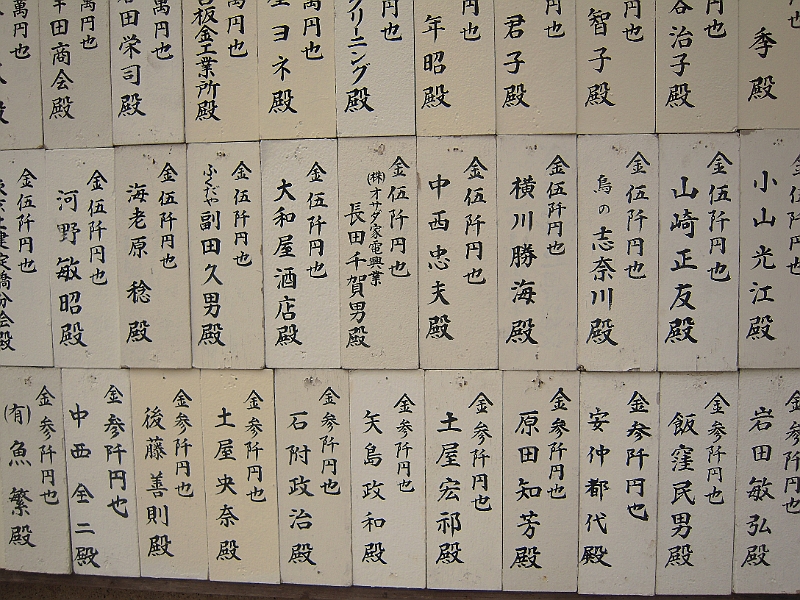 季殿
治子殿
円也
智子殿
円也
君子殿
円也
年昭殿
円也
クリーニング殿
円也
ヨネ殿
萬円也
板金工業所殿
萬円也
田栄司殿
萬円也
田商会殿
萬円也
小山光江殿
金伍阡円也
山崎正友殿
金伍阡円也
鳥の志奈川殿
金伍阡円也
横川勝海殿
金伍阡円也
中西忠夫殿
金伍阡円也
㈱オサダ家電興業
長田千賀男殿
金伍阡円也
大和屋酒店殿
金伍阡円也
ふくだや副田久男殿
金伍阡円也
海老原稔殿
金伍阡円也
河野敏昭殿
金伍阡円也
金参阡円也
岩田敏弘殿
金参阡円也
飯窪民男殿
金参阡円也
安仲都代殿
金参阡円也
原田知芳殿
金参阡円也
土屋宏祁殿
金参阡円也
矢島政和殿
金参阡円也
石附政治殿
金参阡円也
土屋央奈殿
金参阡円也
後藤善則殿
金参阡円也
中西全二殿
金参阡円也
(有)魚繁殿